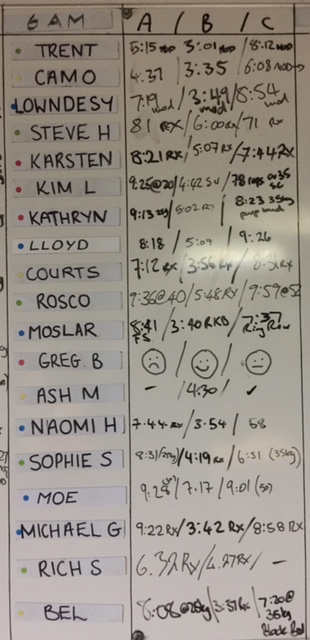 6 AM A / B / C
TRENT 5:15 mod 3:01 mod / 8:12 mod
CAMO 4.37 / 3:35 / 6:08 mod
LOWNDESY 7:19 mod / 3:49 mod / 8:54 mod
STEVE H 81 RX / 6:00 RX / 71 RX
KARSTEN 8:21 RX / 5:07 RX / 7:44 RX
KIM L 9:25@20 / 4:42 / 78 reps
KATHRYN 9:13 / 5:02 / 8:23 35kg
LLOYD 8:18 / 5:09 / 9:26
COURTS 7:12 RX / 3:56 RX / 8:31 RX
ROSCO 9:36@40 / 5:48 RX / 9:59@52
MOSLAR 8:41 FS / 3:40 RKB / 7:37 Ring Row
GREG. B / /
ASH M - / 4:30 / ✓
NAOMI H 7.44 RX / 3:54 / 58
SOPHIE S 8:31 / 4:19 RX / 6:31 (35kg)
MOE 9:28 / 7:17 / 9:01 (50)
MICHAEL G 9:22 RX / 3:42 RX / 8:58 RX
RICH S 6.32 RX / 4.27 RX / -
BEL 8:08 / 3:37 RX / 7:30@ 35kg